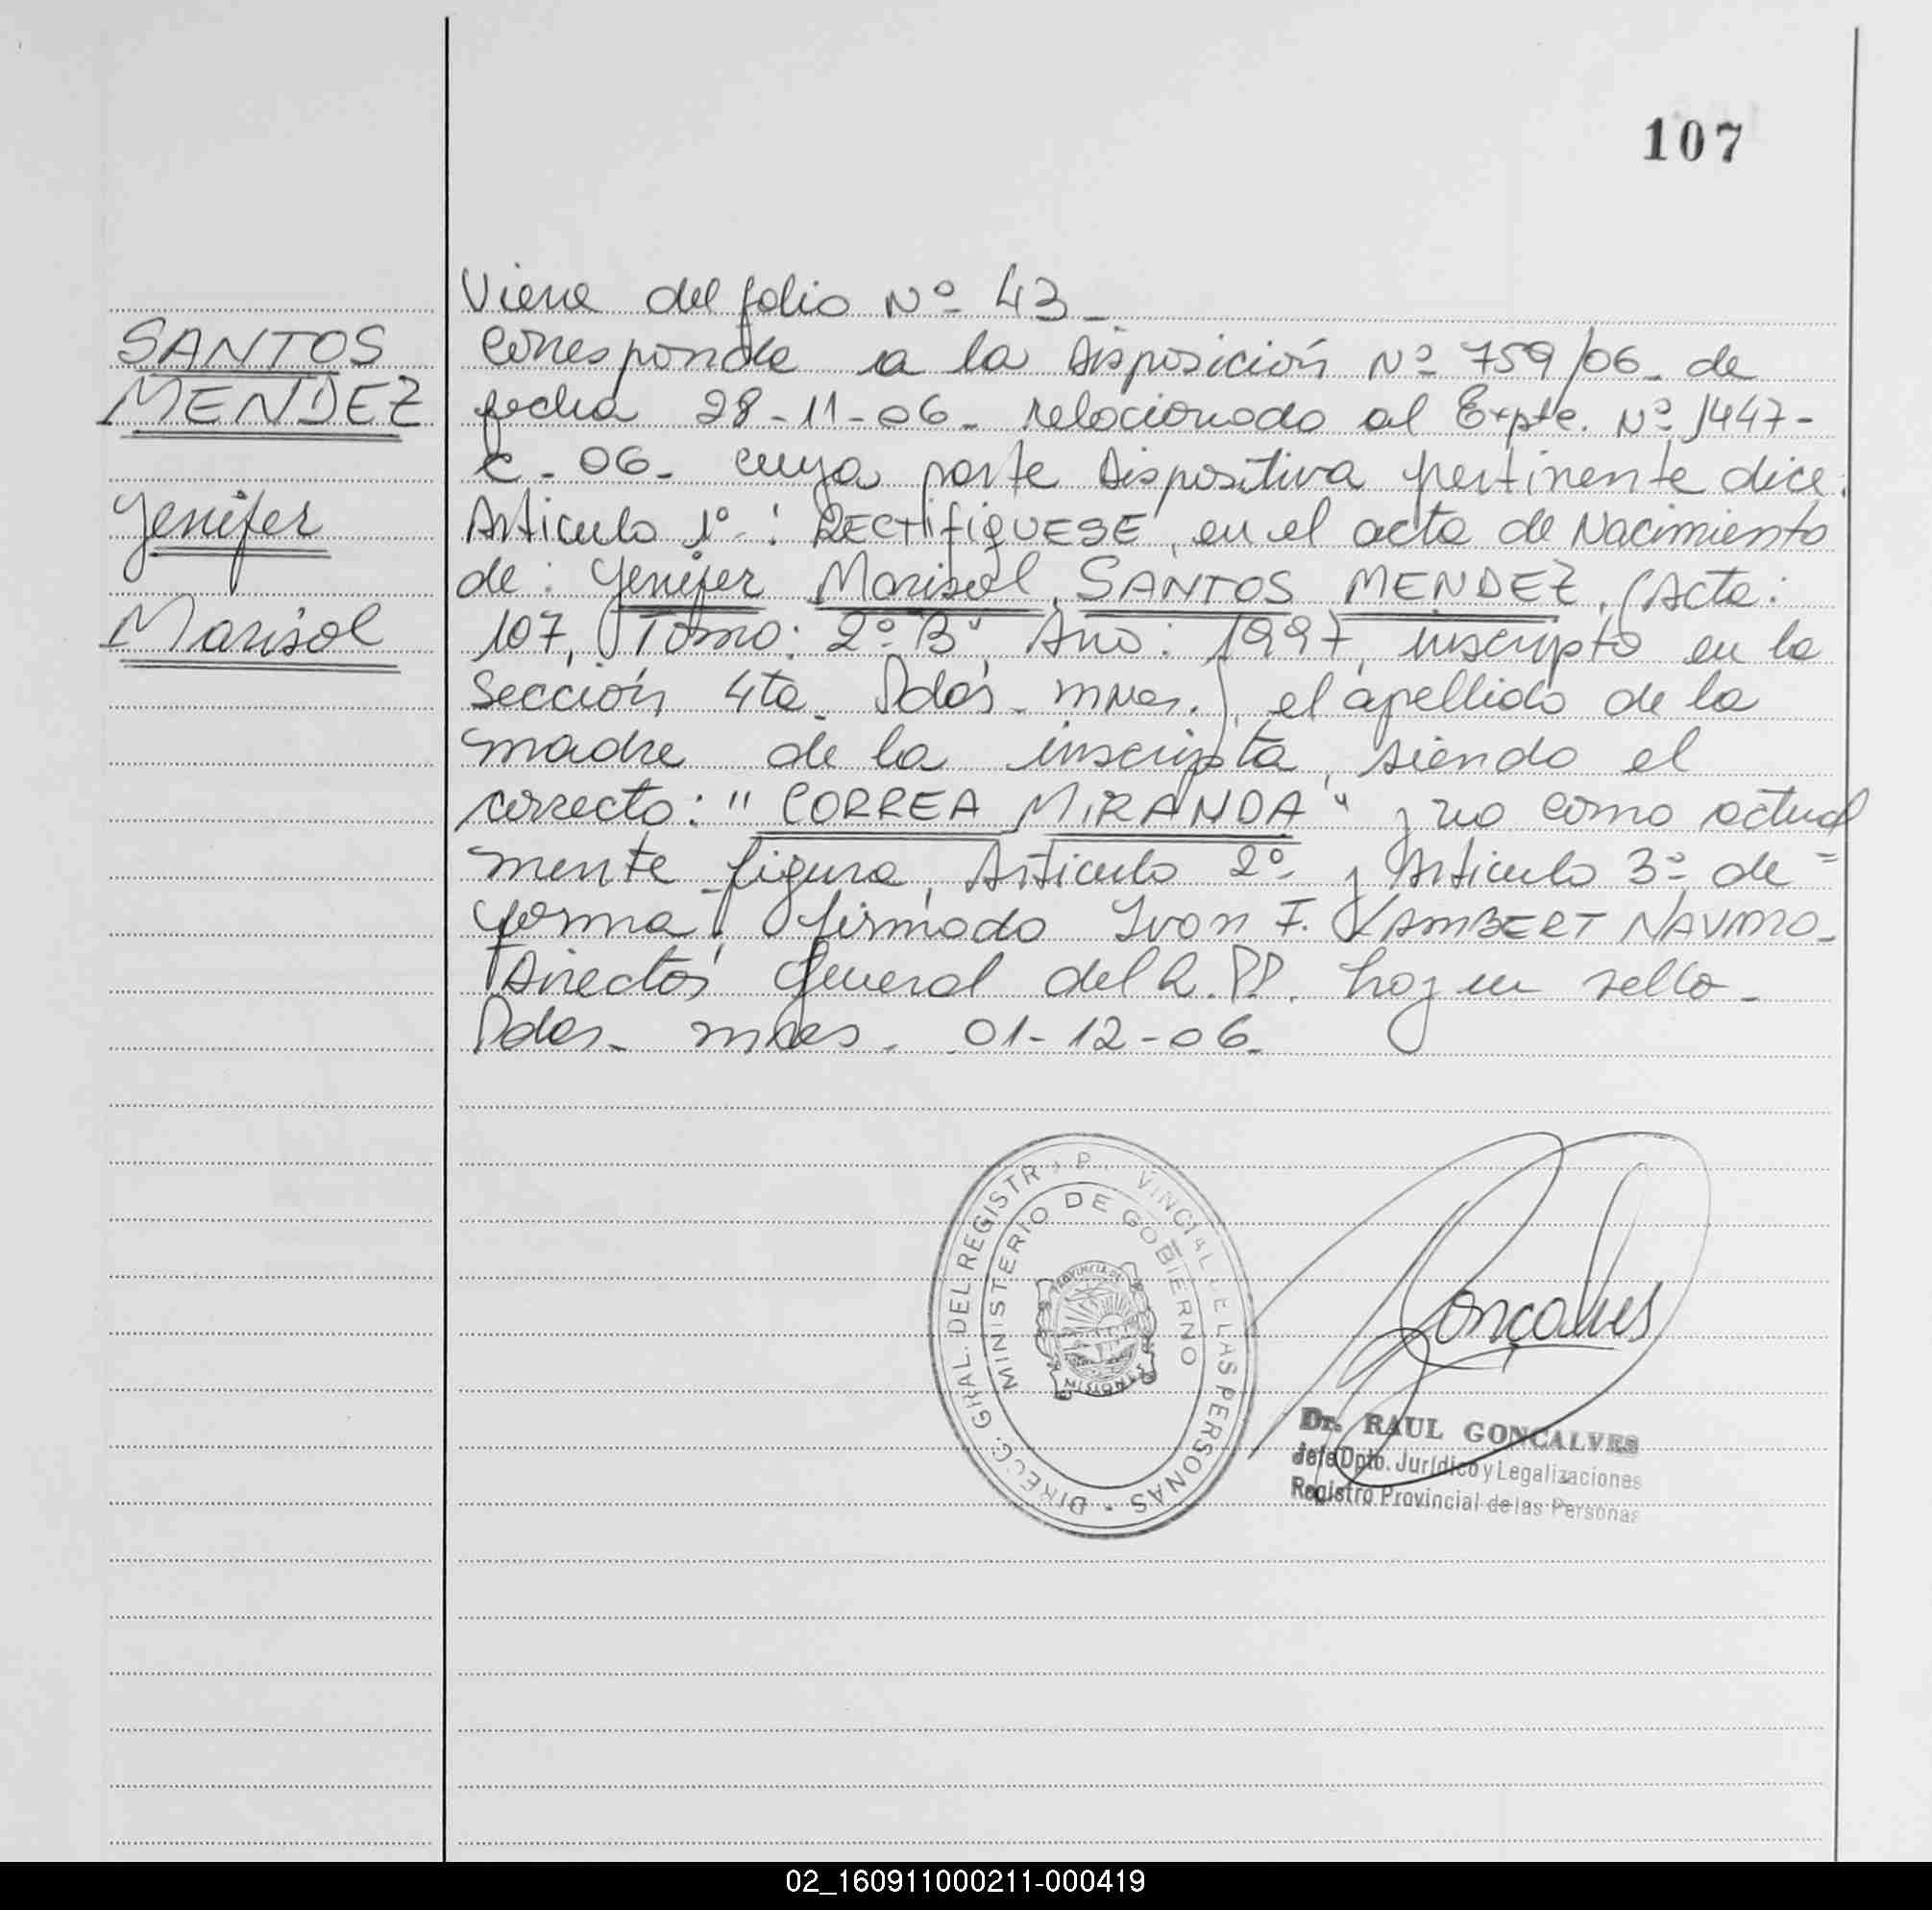 107
Viene del folio Nº 43_
SANTOS
MENDEZ
Yenifer
Marisol
corresponde a la Disposición Nº 759/06_ de
fecha 28-11-06_ relacionado al Expte. Nº 1447-
C-06_ cuya parte Dispositiva pertinente dice:
Articulo 1º: RECTIFIQUESE, en el acta de Nacimiento
de: Yenifer Marisol SANTOS MENDEZ, (Acta:
107, Tomo: 2º "B", Año: 1997, inscripto en la
Sección 4ta_ Pdas_ mnes.), el apellido de la
madre de la inscripta, siendo el
correcto: "CORREA MIRANDA" y no como actual
mente figura, Articulo 2º y Articulo 3º de
forma, firmado Ivon F. LAMBERT NAVARRO_
Director General del R.PP. hay un sello_
Pdas_ mnes_ 01-12-06_
DIRECC. GRAL. DEL REGISTRO P VINCIAL DE LAS PERSONAS
MINISTERIO DE GOBIERNO
PROVINCIA DE
MISIONES
Goncalves
Dr. RAUL GONCALVES
Jefe Dpto. Jurídico y Legalizaciones
Registro Provincial de las Personas
02_160911000211-000419